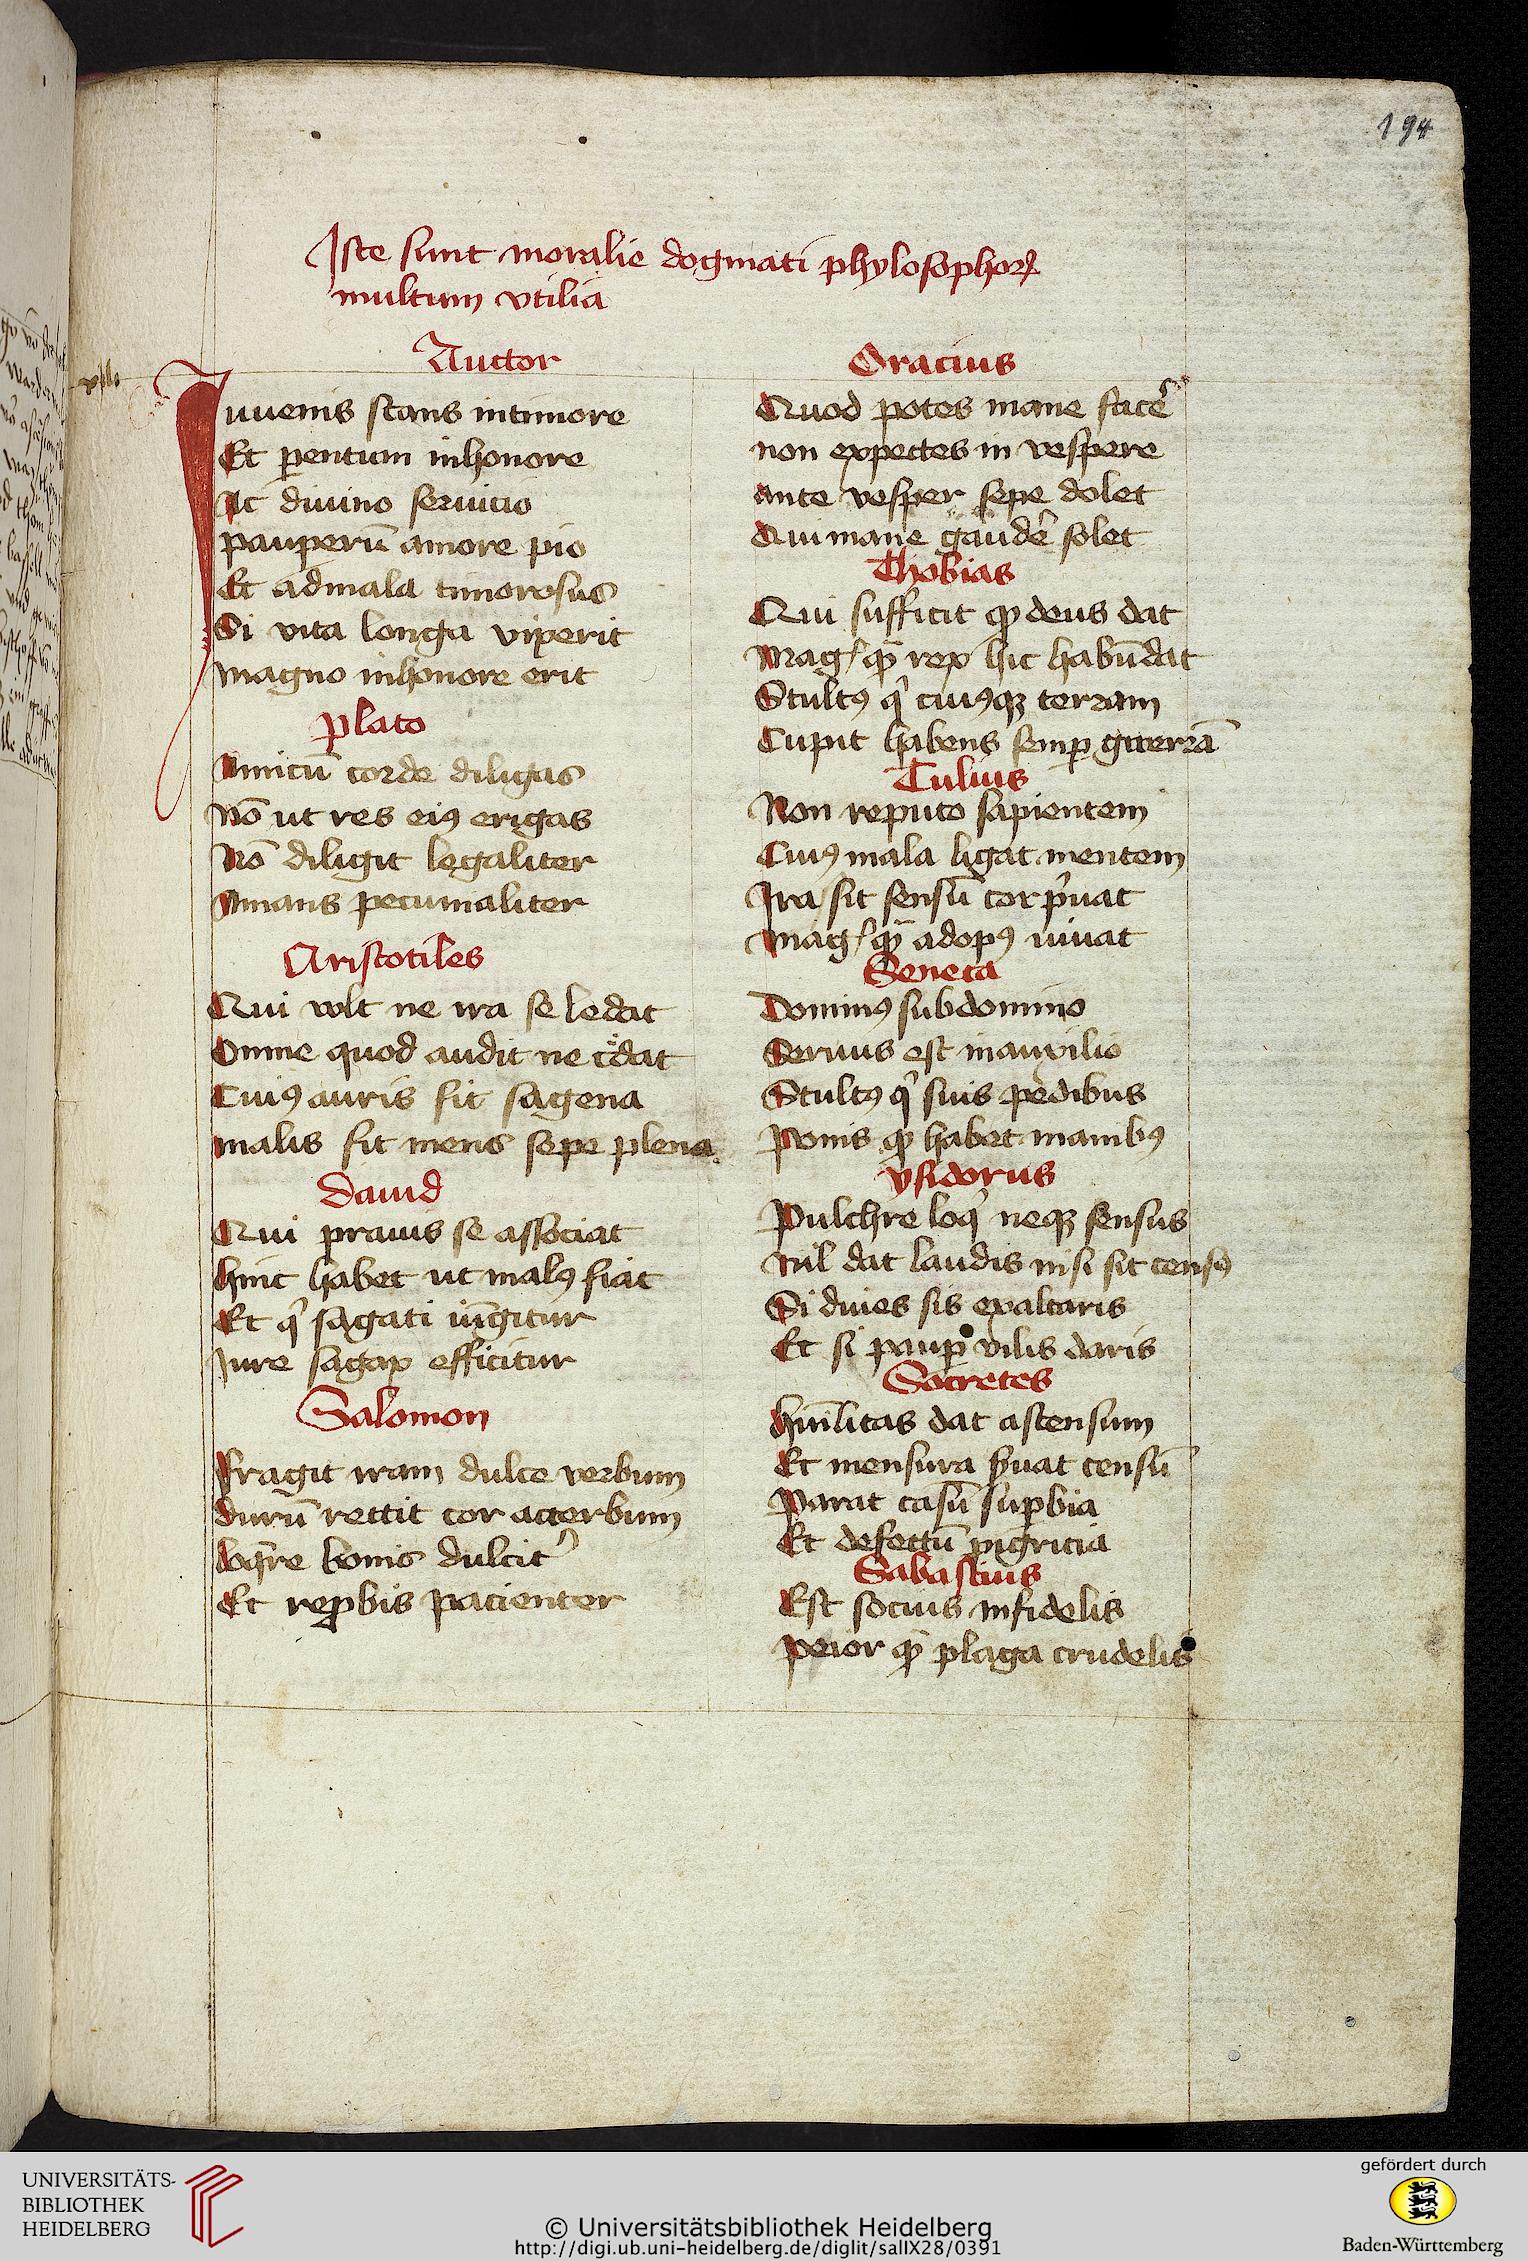 194
Iste sunt moralie dogmati phylosophoꝝ
multum vtilia
Auctor
Iuuenis stans in timore
Et ꝑentum in honore
Ac diuino seruicio
pauperū amore pio
Et ad mala timorosus
Si vita longa viperit
magno in honore erit
plato
Amicū corde diligas
Nō ut res eiꝰ erigas
Nō diligit legaliter
Amans pecunialiter
Aristotiles
Qui volt ne ira se ledat
Omne quod audit ne c̄dat
Cuiꝰ auris fit sagena
malis fit mens sepe plena
dauid
Qui prauis se associat
hinc habet ut malꝰ fiat
Et qͥ sagati iūgitur
Jure sagax efficitur
Salomon
Fragit iram dulce verbum
durū rettit cor acerbum
loq̄re bonis dulcit᷑
Et reꝓbis pacienter
Oracius
Quod potes mane facē
non expectes in vespere
ante vesper sepe dolet
Qui mane gaudē solet
Thobias
Qui sufficit qͩ deus dat
Magꝭ qͣ rex hic habūdat
Stultꝰ qͥ cuiꝰqꝫ terram
Cupit habens semꝑ guerrā
Tulius
Non reputo sapientem
Cuiꝰ mala ligat mentem
Ira sit sensū cor pͥuat
Magꝭ qͣ ad opꝰ iuuat
Seneca
Dominꝰ sub domino
Seruus est in auxilio
Stultꝰ qͥ suis pedibus
Ponis qͩ habet manibꝰ
ysidorus
Pulchre loqͥ neqꝫ sensus
Nil dat laudis nisi sit censꝰ
Si diues sis exaltaris
Et si pauꝑ vilis daris
Socretes
hūilitas dat ascensum
Et mensura ẜuat censū
Parat casū suꝑbia
Et defectū pigricia
Sabastius
Est socius infidelis
peior qͣ plaga crudelis
UNIVERSITÄTS-
BIBLIOTHEK
HEIDELBERG
© Universitätsbibliothek Heidelberg
http://digi.ub.uni-heidelberg.de/diglit/salIX28/0391
gefördert durch
Baden-Württemberg